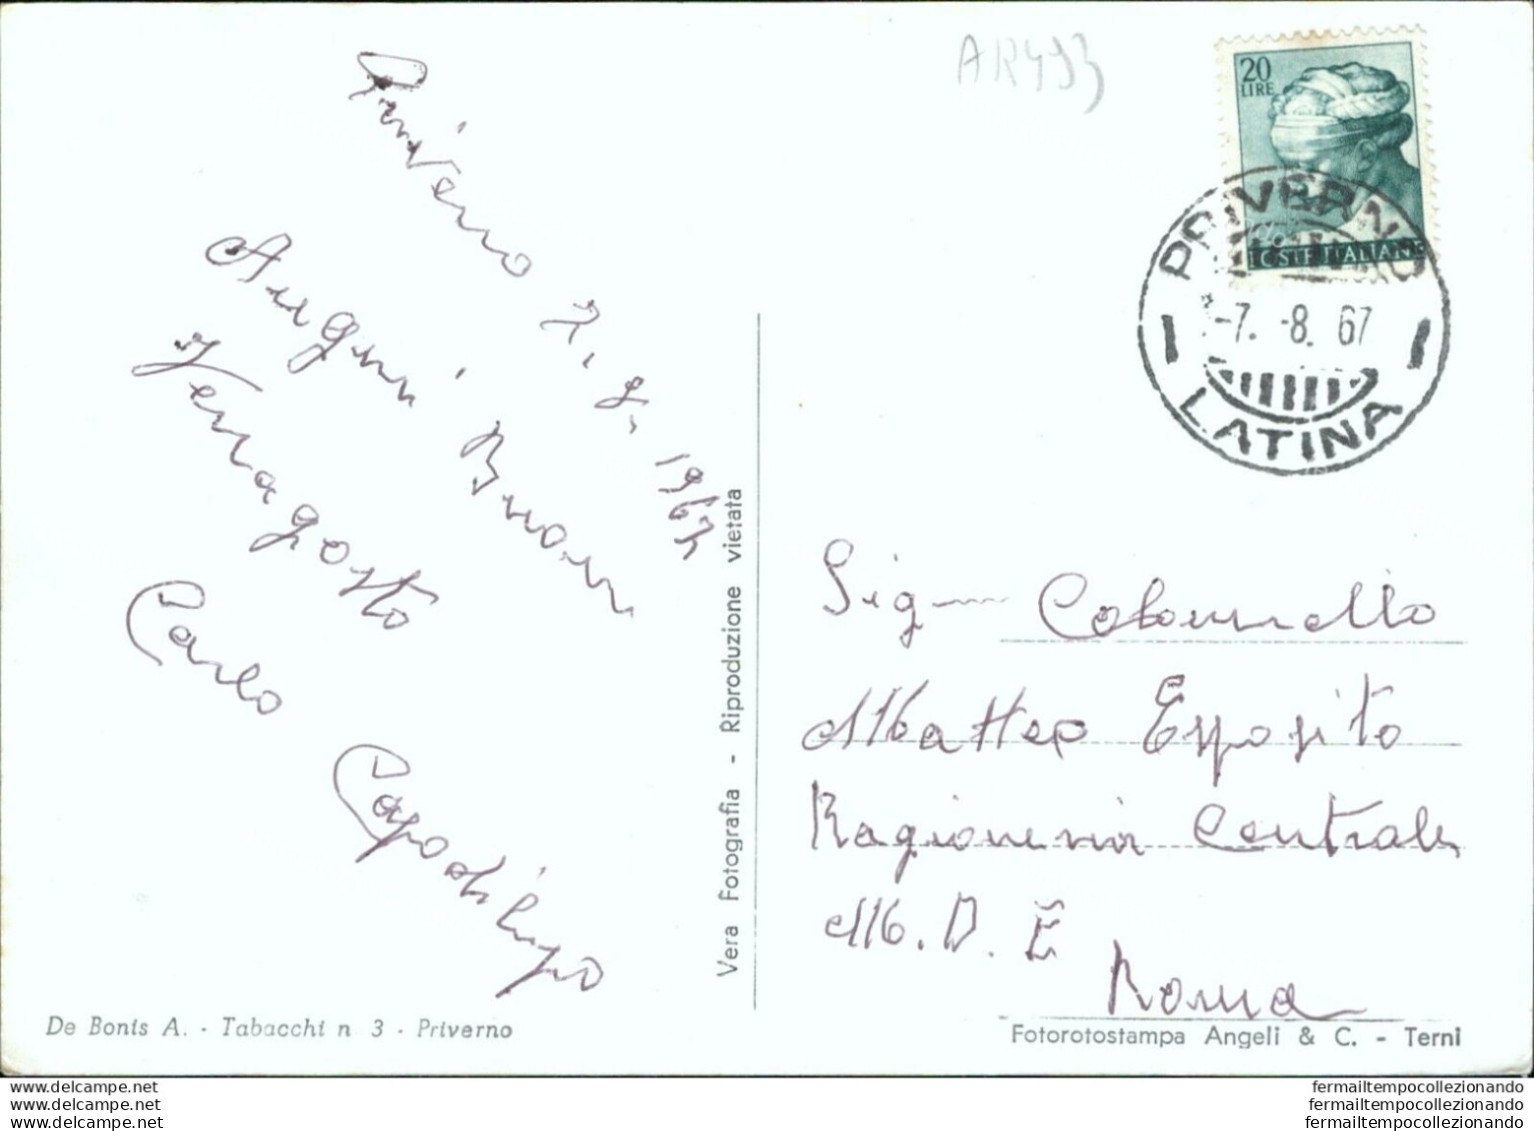 AR493
20
LIRE
POSTE ITALIANE
PRIVERNO
-7. -8. 67
LATINA
Priverno 7. 8. 1967
Auguri Buon
Ferragosto
Carlo Capodilupo
Vera Fotografia - Riproduzione vietata
Sig Colonnello
Matteo Esposito
Ragioneria Centrale
M. D. E
Roma
De Bonis A. - Tabacchi n 3 - Priverno
Fotorotostampa Angeli & C. - Terni
www.delcampe.net
www.delcampe.net
www.delcampe.net
fermailtempocollezionando
fermailtempocollezionando
fermailtempocollezionando